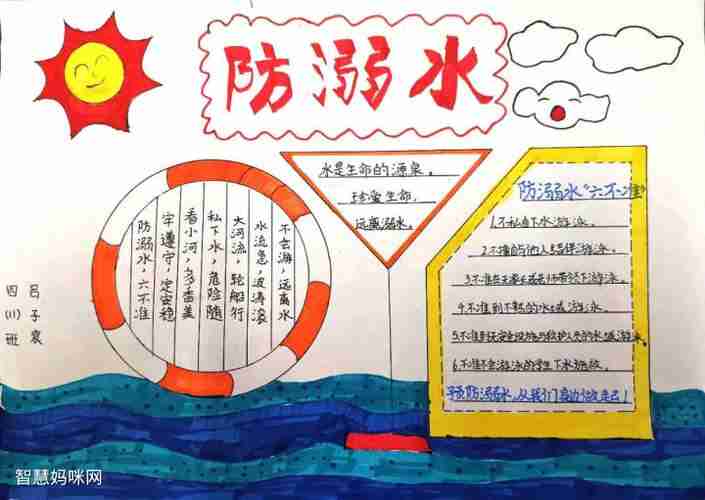 防溺水
防溺水，六不准
牢遵守，定安稳
看小河，多番美
私下水，危险随
大河流 轮船行
水流急，波涛滚
不会游，远离水
水是生命的源泉。
珍爱生命，
远离溺水。
防溺水“六不准”
1.不私自下水游泳。
2.不擅自与他人结伴游泳。
3.不准在无家长或老师带领下游泳。
4.不准到不熟的水域游泳。
5.不准到无安全设施与救护人员的水域游泳。
6.不准不会游泳的学生下水施救。
预防溺水，从我们身边做起！
四(11)班
吕子
智慧妈咪网